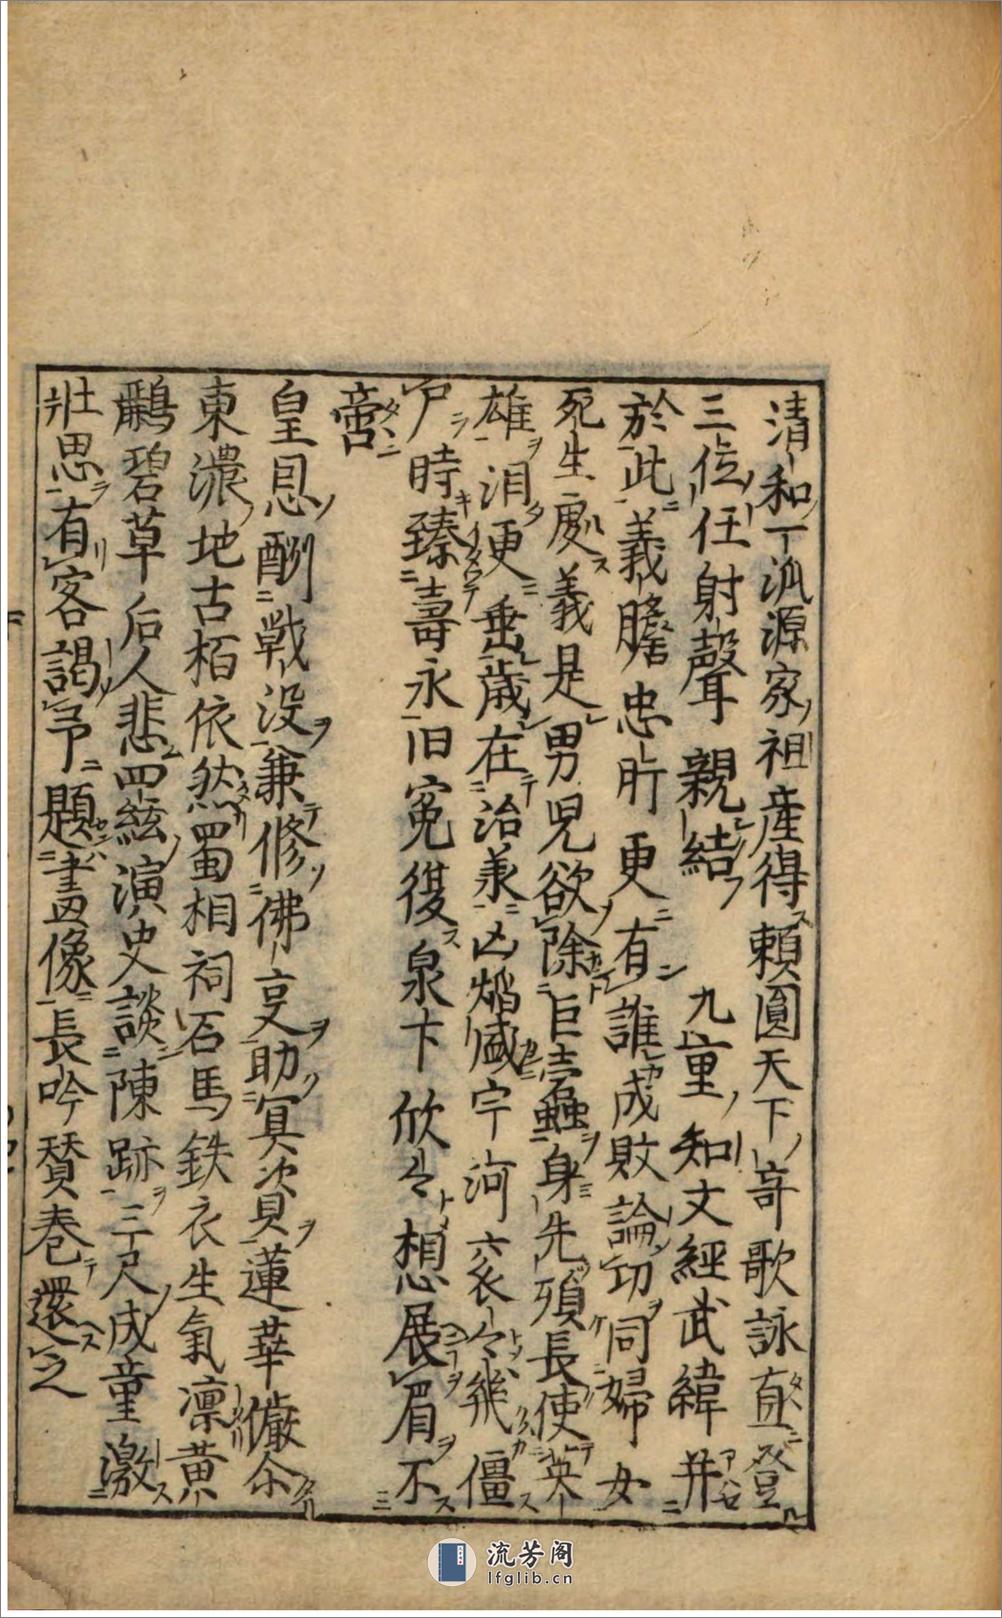 清和一派源家祖産得頼圓天下竒歌詠直登
三位任射聲親結　九重知文經武緯并
於此義膽忠肝更有誰成敗論功同婦女
死生處義是男児欲除巨蠧身先殞長使英
雄泪更垂歳在治承凶焔盛宇河衮々幾僵
尸時臻壽永旧寃復泉下欣々想展眉不
啻
皇恩酬戰没兼修佛叓助冥資蓮華儼尒
東濃地古栢依然蜀相祠石馬鉄衣生氣凛黄
鸝碧草后人悲四絃演史談陳跡三尺成童激
壯思有客謁予題畫像長吟賛巻還之
流芳阁
lfglib.cn